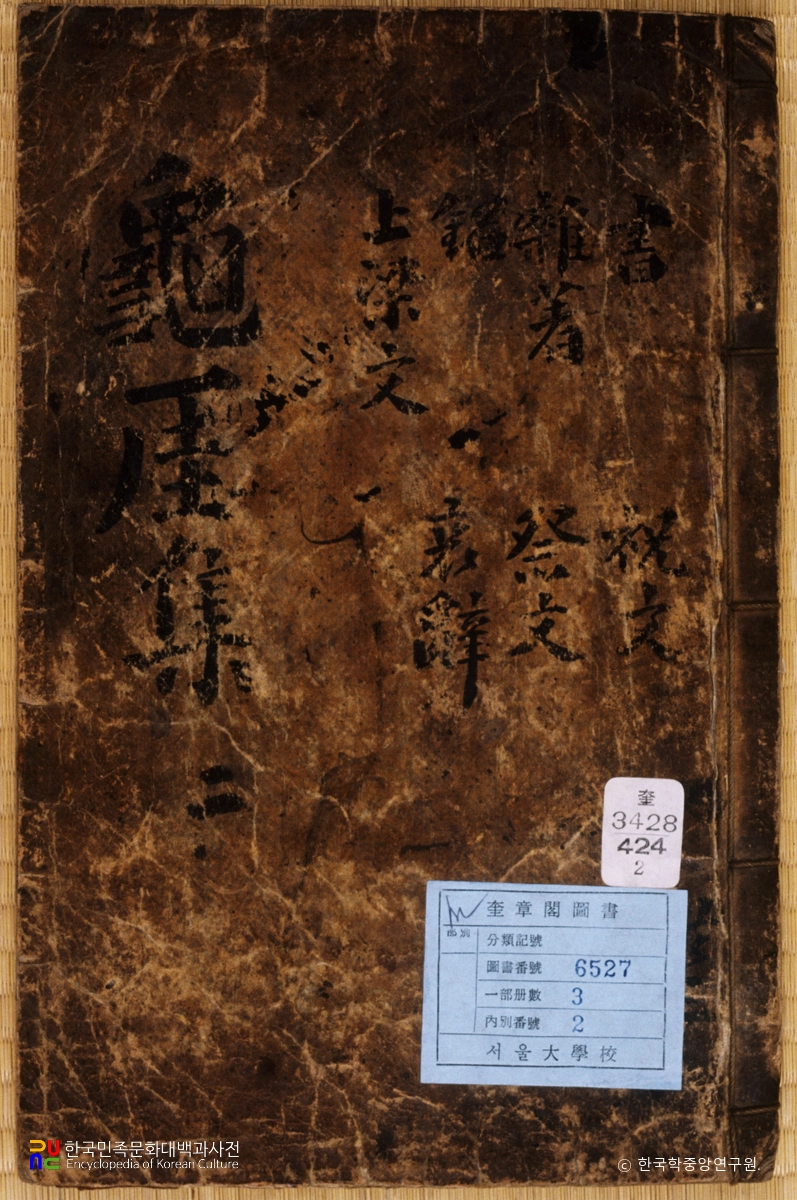 龜厓集 二
書
雜著
銘
上梁文
祝文
祭文
哀辭
奎
3428
424
2
奎章閣圖書
部別
分類記號
圖書番號 6527
一部册數 3
內別番號 2
서울大學校
한국민족문화대백과사전
Encyclopedia of Korean Culture
© 한국학중앙연구원.